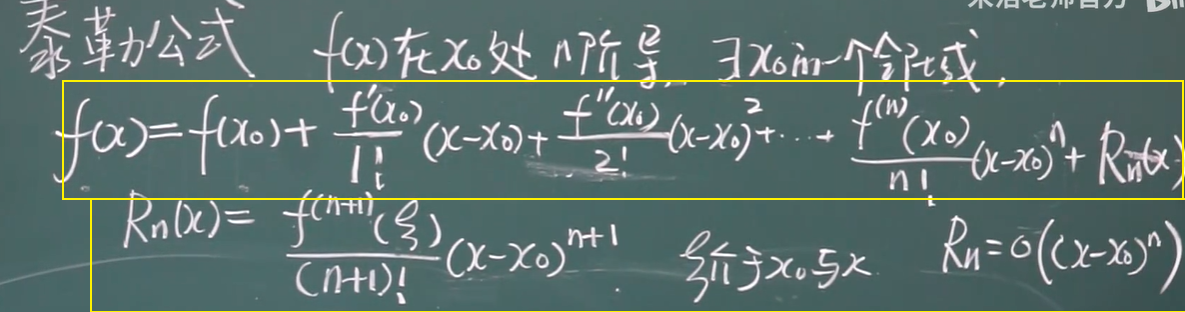 宋浩老师官方
泰勒公式 f(x)在x₀处n阶导, ∃x₀的一个邻域,
f(x)=f(x₀)+\frac{f'(x₀)}{1!}(x-x₀)+\frac{f''(x₀)}{2!}(x-x₀)²+…+\frac{f^{(n)}(x₀)}{n!}(x-x₀)^n+Rn(x)
Rn(x)=\frac{f^{(n+1)}(ξ)}{(n+1)!}(x-x₀)^{n+1} ξ介于x₀与x Rn=o((x-x₀)^n)